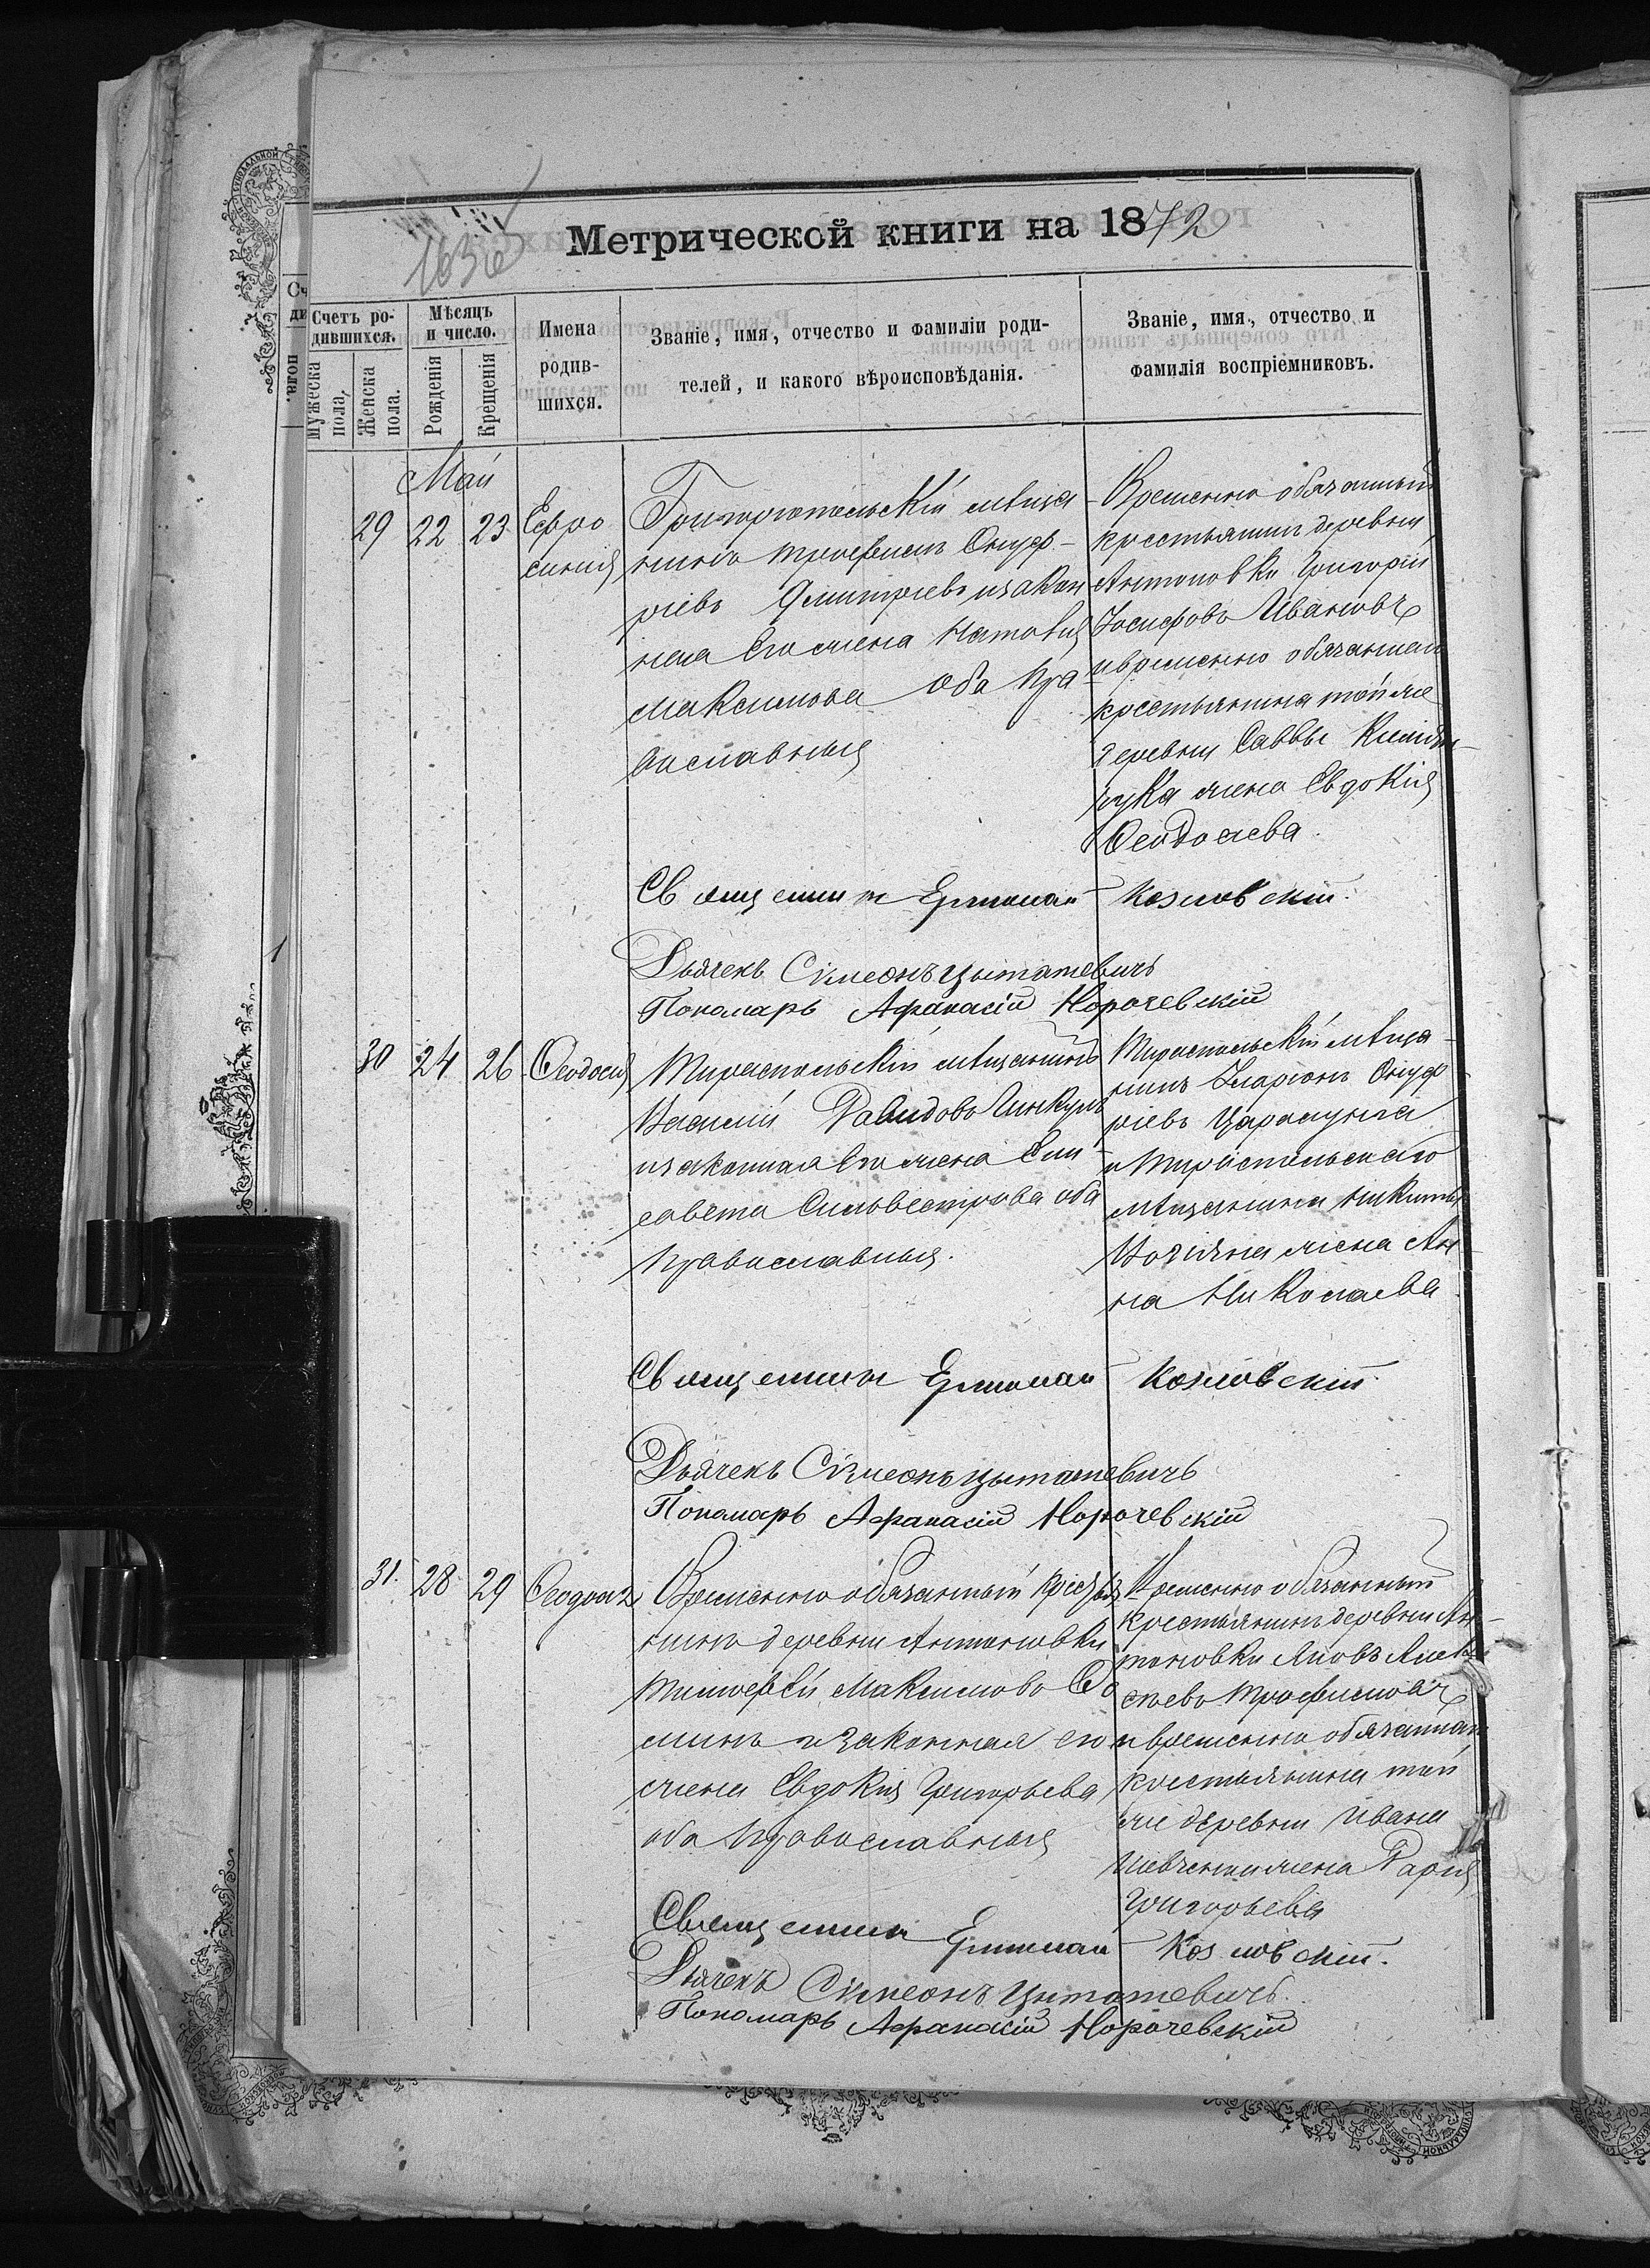 1636
Метрической книги на 1872
Счетъ ро-
дившихся.
Мужеска
пола.
Женска
пола.
Мѣсяцъ
и число.
Рожденія
Крещенія
Имена
родив-
шихся.
Званіе, имя, отчество и фамиліи роди-
телей, и какого вѣроисповѣданія.
Званіе, имя, отчество и
фамилія воспріемниковъ.
Май
29 22 23
Евфро
синія
Григоріопольскій мѣща
нинъ Трофимъ Онуф-
ріевъ Дмитріевъ изакон
ная Его жена Наталія
Максимова оба пра
вославныя
Временно обязанный
крестьянинъ деревни
Антоновки Григорій
Іосифовъ Ивановъ
ивременно обязаннаго
крестьянина той же
деревни Саввы
жена Евдокія
Ѳеодосіева
Священникъ Ермолай Козловскій.
Дьячекъ Сімеонъ Цытатевичъ
Пономарь Афанасій Корочевскій
30 24 26 Ѳеодосія
Тираспольскій мѣщанинъ
Василій Давидовъ Инкулъ
изаконная Его жена Ели
савета Сильвестрова оба
православныя.
Тираспольскій мѣща-
нинъ Иларіонъ Онуф
ріевъ Царалунга
и Тираспольскаго
мѣщанина Никиты
жена Ан
на Николаева
Священникъ Ермолай Козловскій.
Дьячекъ Сімеонъ Цытатевичъ
Пономарь Афанасій Корочевскій
31. 28 29 Ѳеодосія
Временно обязанный крестья
нинъ деревни Антоновки
Тимофѣй Максимовъ Ѳо
минъ изаконная его
жена Евдокія Григорьева
оба православныя
Временно обязанный
крестьянинъ деревни Ан-
тоновки Яковъ Алек
сѣевъ Трофимовъ
и временно обязаннаго
крестьянина той
же деревни Ивана
Шевченка жена Дарія
Григорьева
Священникъ Ермолай Козловскій.
Дьячекъ Сімеонъ Цытатевичъ.
Пономарь Афанасій Корочевскій